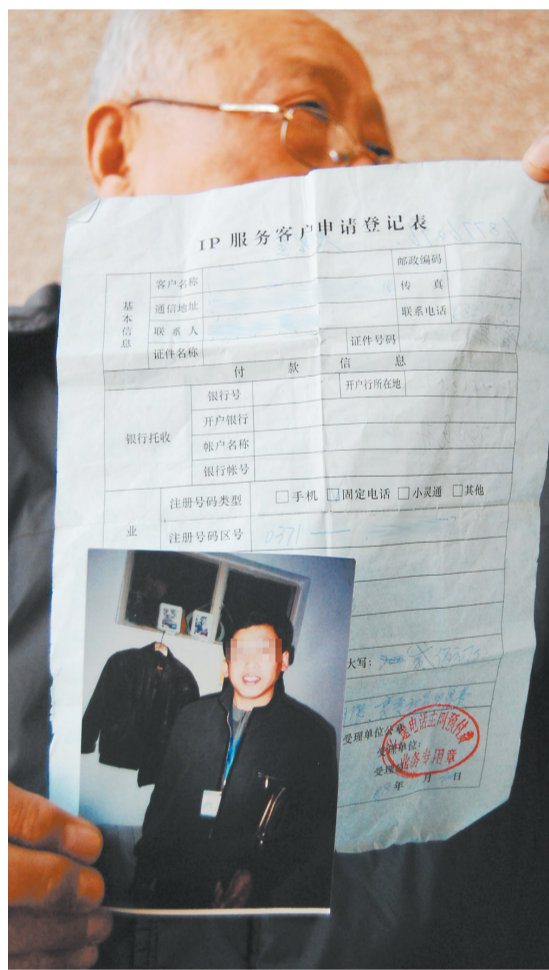 IP 服务客户申请登记表
基本信息
客户名称
邮政编码
通信地址
传真
联系人
联系电话
证件名称
证件号码
付款信息
银行托收
银行号
开户行所在地
开户银行
帐户名称
银行帐号
业
注册号码类型
□手机 □固定电话 □小灵通 □其他
注册号码区号
0371
大写:
受理单位公章
受理单位:
年 月 日
业务专用章